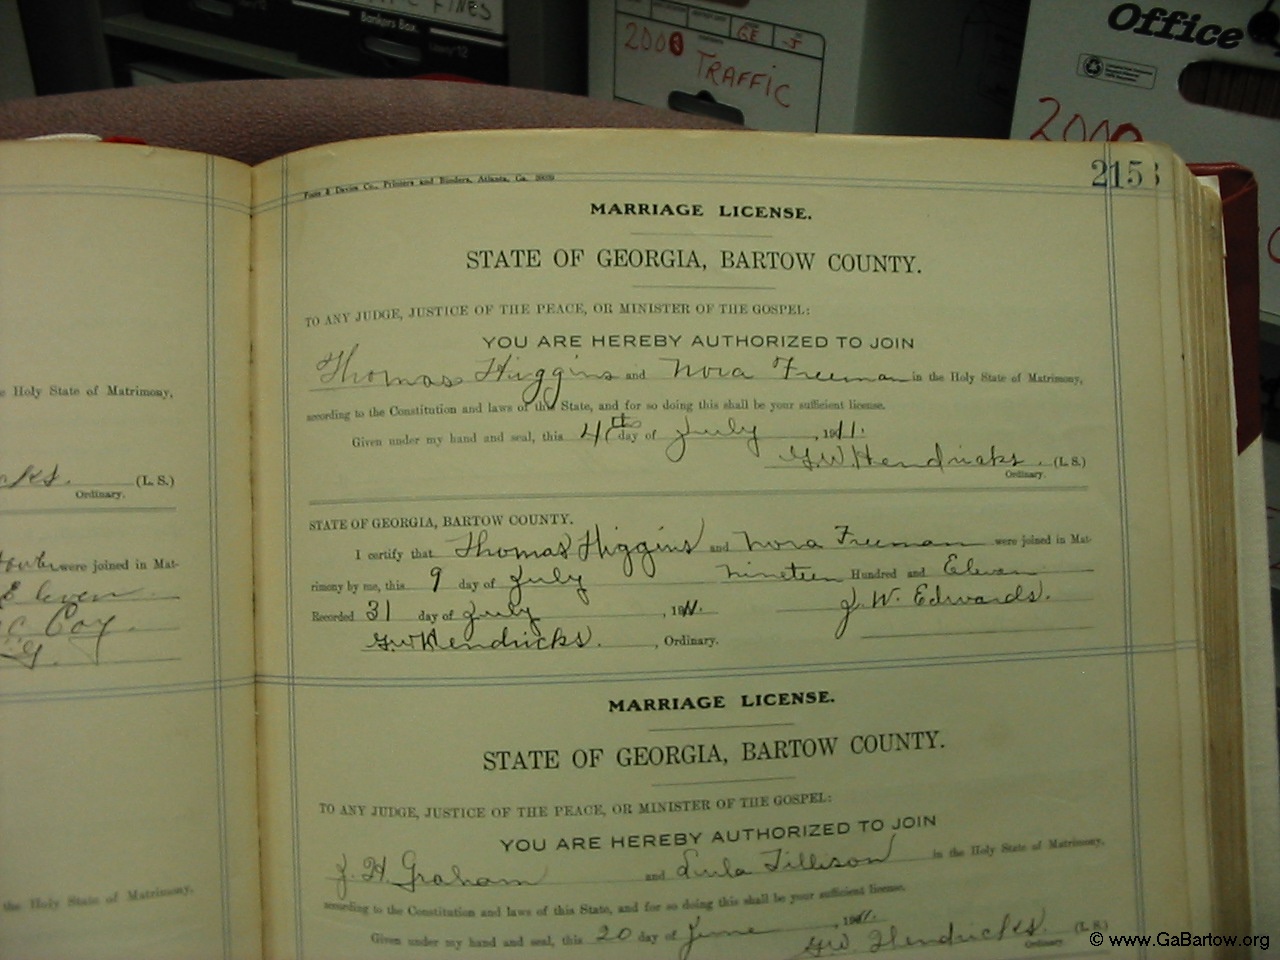 FINES
Bankers Box
2000 TRAFFIC
GE -J
Office
2000
215
Foote & Davies Co., Printers and Binders, Atlanta, Ga.
MARRIAGE LICENSE.
STATE OF GEORGIA, BARTOW COUNTY.
TO ANY JUDGE, JUSTICE OF THE PEACE, OR MINISTER OF THE GOSPEL:
YOU ARE HEREBY AUTHORIZED TO JOIN
Thomas Higgins and Nora Freeman in the Holy State of Matrimony,
according to the Constitution and laws of this State, and for so doing this shall be your sufficient license.
Given under my hand and seal, this 4th day of July, 1911.
G.W. Hendricks. (L. S.)
Ordinary.
STATE OF GEORGIA, BARTOW COUNTY.
I certify that Thomas Higgins and Nora Freeman were joined in Mat-
rimony by me, this 9 day of July nineteen Hundred and Eleven
Recorded 31 day of July, 1911. J. W. Edwards.
G.W. Hendricks., Ordinary.
MARRIAGE LICENSE.
STATE OF GEORGIA, BARTOW COUNTY.
TO ANY JUDGE, JUSTICE OF THE PEACE, OR MINISTER OF THE GOSPEL:
YOU ARE HEREBY AUTHORIZED TO JOIN
J. H. Graham and Lula Tillison in the Holy State of Matrimony,
according to the Constitution and laws of this State, and for so doing this shall be your sufficient license.
Given under my hand and seal, this 20 day of June, 1911.
G.W. Hendricks. (L. S.)
Ordinary
Holy State of Matrimony,
cks. (L. S.)
Ordinary.
were joined in Mat-
Eleven
Coy.
the Holy State of Matrimony,
© www.GaBartow.org